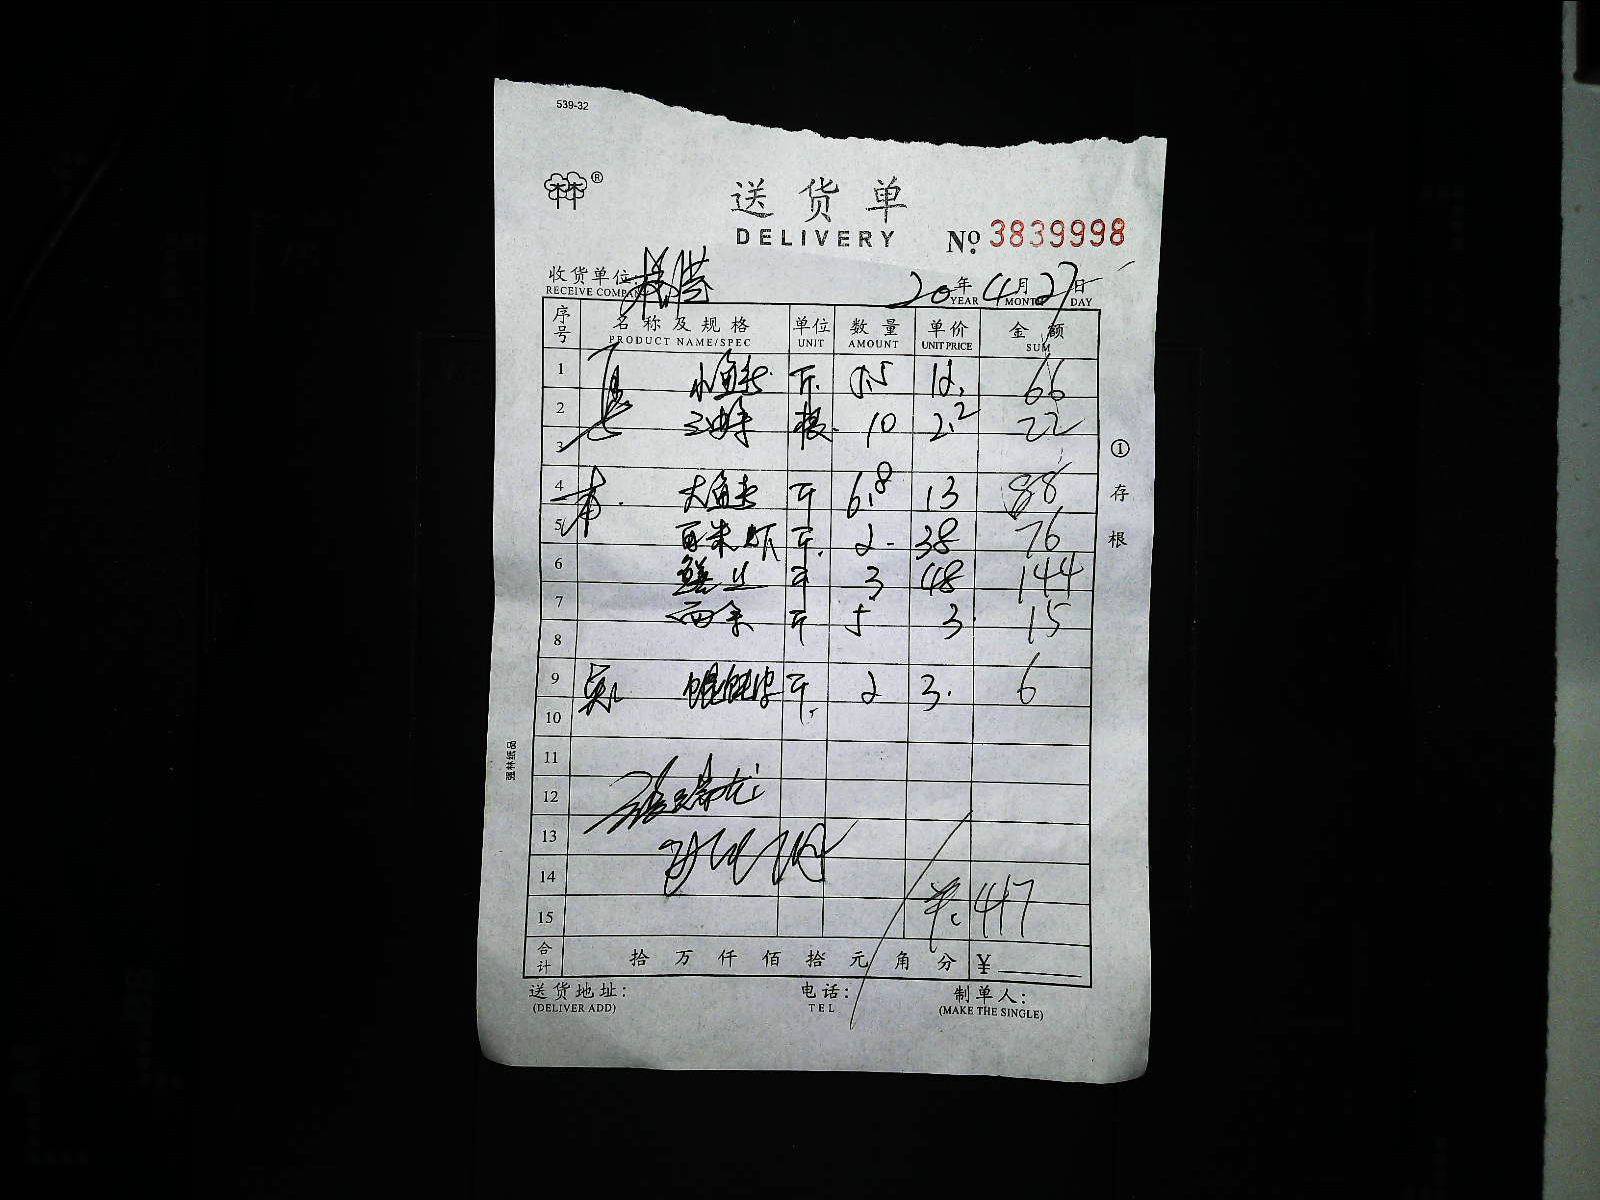 539-32
林林®
送货单
DELIVERY No. 3839998
收货单位:
RECEIVE COMPANY
20年4月27日
YEAR MONTH DAY
序号 名称及规格 单位 数量 单价 金额
PRODUCT NAME/SPEC UNIT AMOUNT UNIT PRICE SUM
1 小鱼 斤 5.5 12. 66
2 油条 根 10 2.2 22
3
4 大鱼 斤 6.8 13 88
5 百米虾 斤 2 38 76
6 斤 3 48 144
7 斤 5 3 15
8
9 馄饨皮 斤 2 3. 6
10
11
12
13
14
15 417
合计 拾 万 仟 佰 拾 元 角 分 ¥
送货地址: 电话: 制单人:
(DELIVER ADD) TEL (MAKE THE SINGLE)
①存根
强林纸品